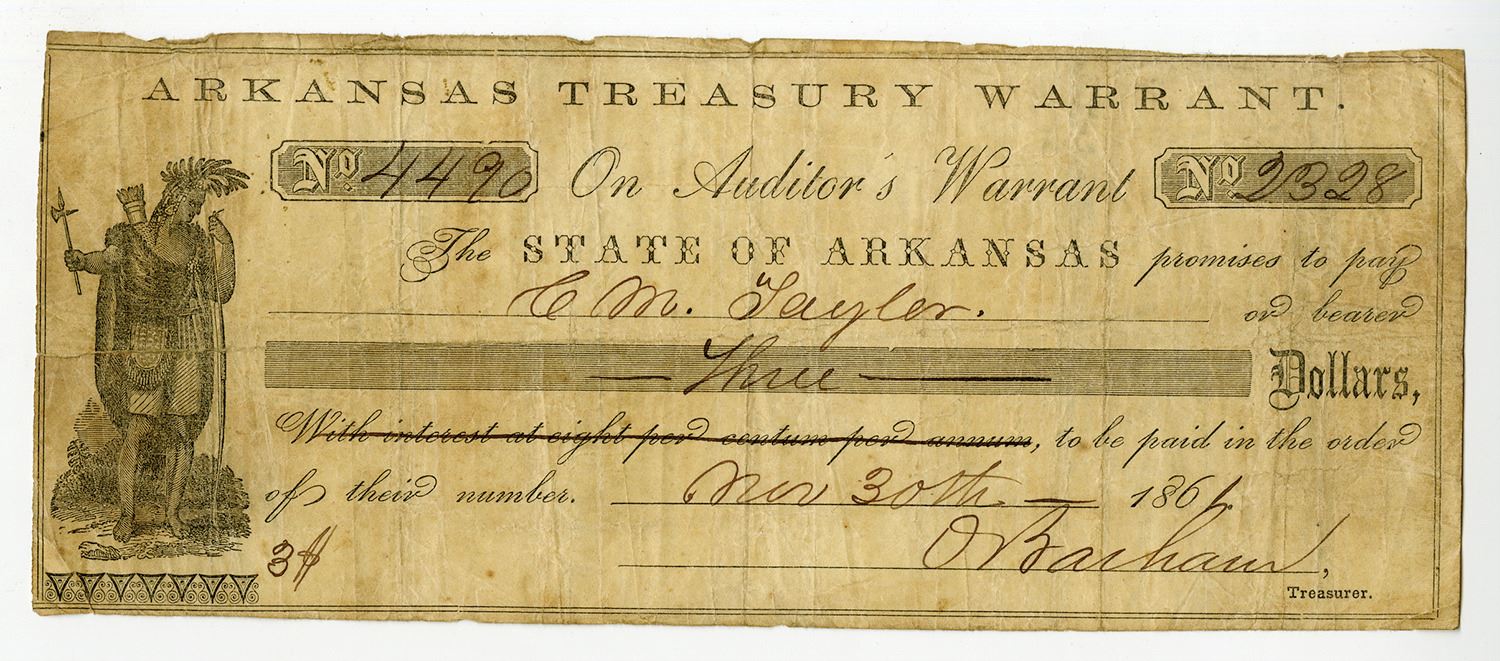 ARKANSAS TREASURY WARRANT.
No. 4490 On Auditor's Warrant No. 2328
The STATE OF ARKANSAS promises to pay
C M. Tayler. or bearer
Three Dollars,
With interest at eight per centum per annum, to be paid in the order
of their number. Nov 30th 1861.
3$ O Barham,
Treasurer.